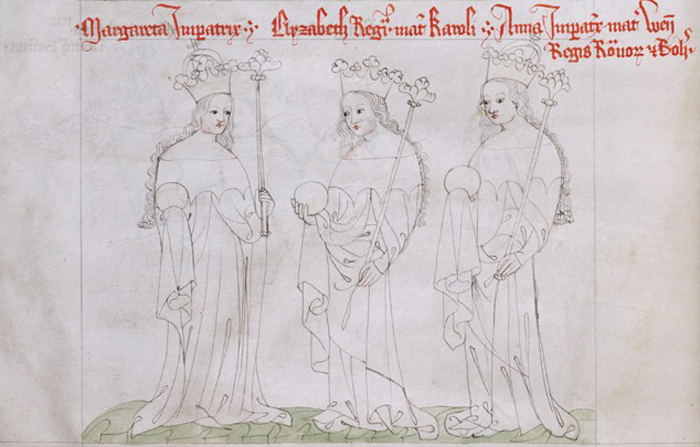 Margareta Impatrix · Elyzabeth Regi᷑ · mat᷑ Karoli · Anna Impat᷑x · mat᷑ Wen᷑
Regis Rōnoꝝ & Boh᷑